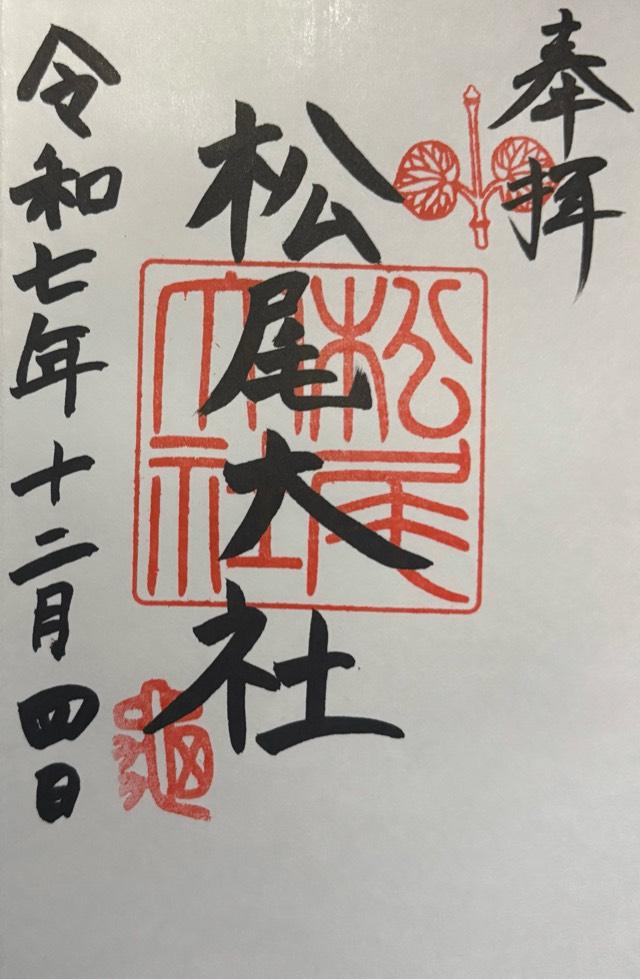 奉拝
松尾大社
松尾大社
亀
令和七年十二月四日